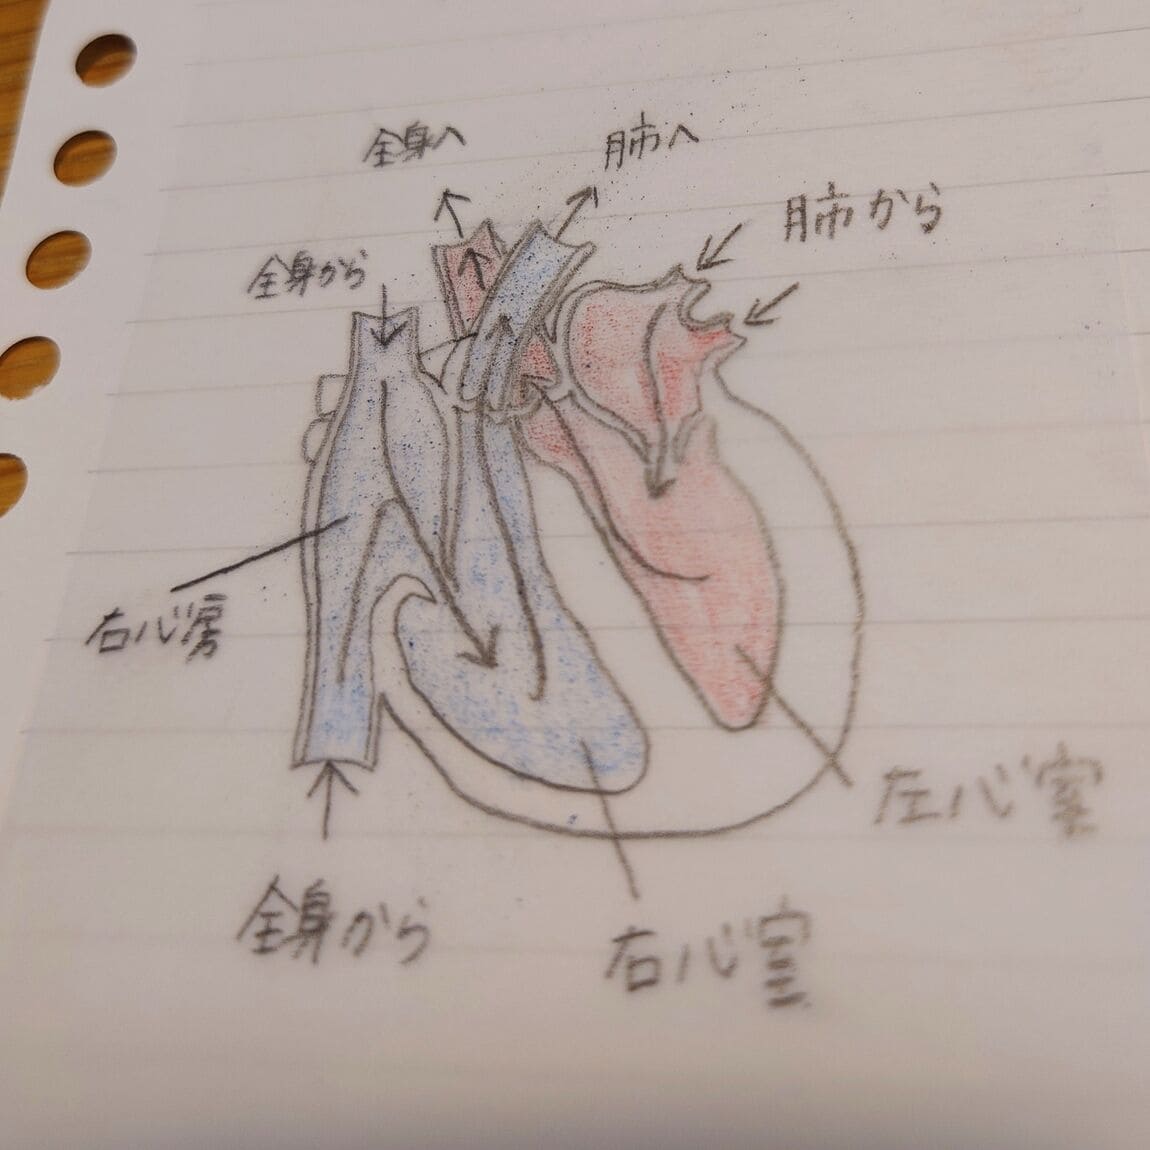 全身へ
肺へ
肺から
全身から
右心房
左心室
全身から
右心室